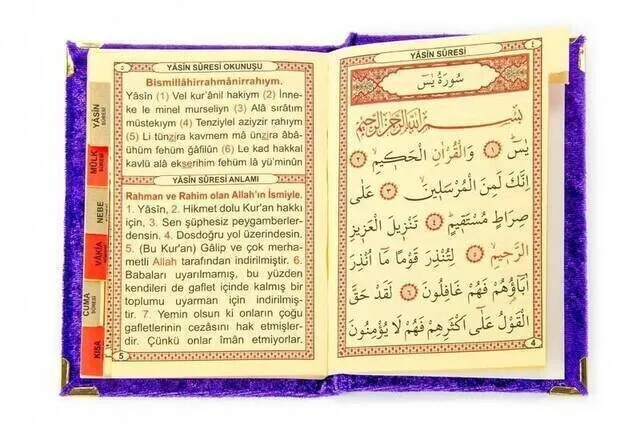 ٥
YÂSİN SÛRESİ OKUNUŞU
Bismillâhirrahmânirrahıym.
Yâsîn (1) Vel kur'ânil hakiym (2) İnne-
ke le minel murseliyn (3) Alâ sırâtım
müstekıym (4) Tenziylel aziyzir rahıym
(5) Li tünzira kavmem mâ ünzira âbâ-
ühüm fehüm gâfilûn (6) Le kad hakkal
kavlü alâ ekserihim fehüm lâ yü'minûn
YÂSİN SÛRESİ ANLAMI
Rahman ve Rahim olan Allah'ın İsmiyle.
1. Yâsîn, 2. Hikmet dolu Kur'an hakkı
için, 3. Sen şüphesiz peygamberler-
densin. 4. Dosdoğru yol üzerindesin.
5. (Bu Kur'an) Gâlip ve çok merha-
metli Allah tarafından indirilmiştir. 6.
Babaları uyarılmamış, bu yüzden
kendileri de gaflet içinde kalmış bir
toplumu uyarman için indirilmiş-
tir. 7. Yemin olsun ki onların çoğu
gafletlerinin cezasını hak etmişler-
dir. Çünkü onlar îmân etmiyorlar.
5
YÂSİN
SÛRESİ
MÜLK
SÛRESİ
NEBE
SÛRESİ
VÂKIA
SÛRESİ
CUMA
SÛRESİ
KISA
YÂSİN SÛRESİ
٤
سُورَةُ يٰسٓ
بِسْمِ اللّٰهِ الرَّحْمٰنِ الرَّحِيمِ
يٰسٓ ﴿١﴾ وَالْقُرْاٰنِ الْحَكِيمِ ﴿٢﴾
اِنَّكَ لَمِنَ الْمُرْسَلِينَ ﴿٣﴾ عَلٰى
صِرَاطٍ مُسْتَقِيمٍ ﴿٤﴾ تَنْزِيلَ الْعَزِيزِ
الرَّحِيمِ ﴿٥﴾ لِتُنْذِرَ قَوْمًا مَٓا اُنْذِرَ
اٰبَٓاؤُهُمْ فَهُمْ غَافِلُونَ ﴿٦﴾ لَقَدْ حَقَّ
الْقَوْلُ عَلٰٓى اَكْثَرِهِمْ فَهُمْ لَا يُؤْمِنُونَ
4